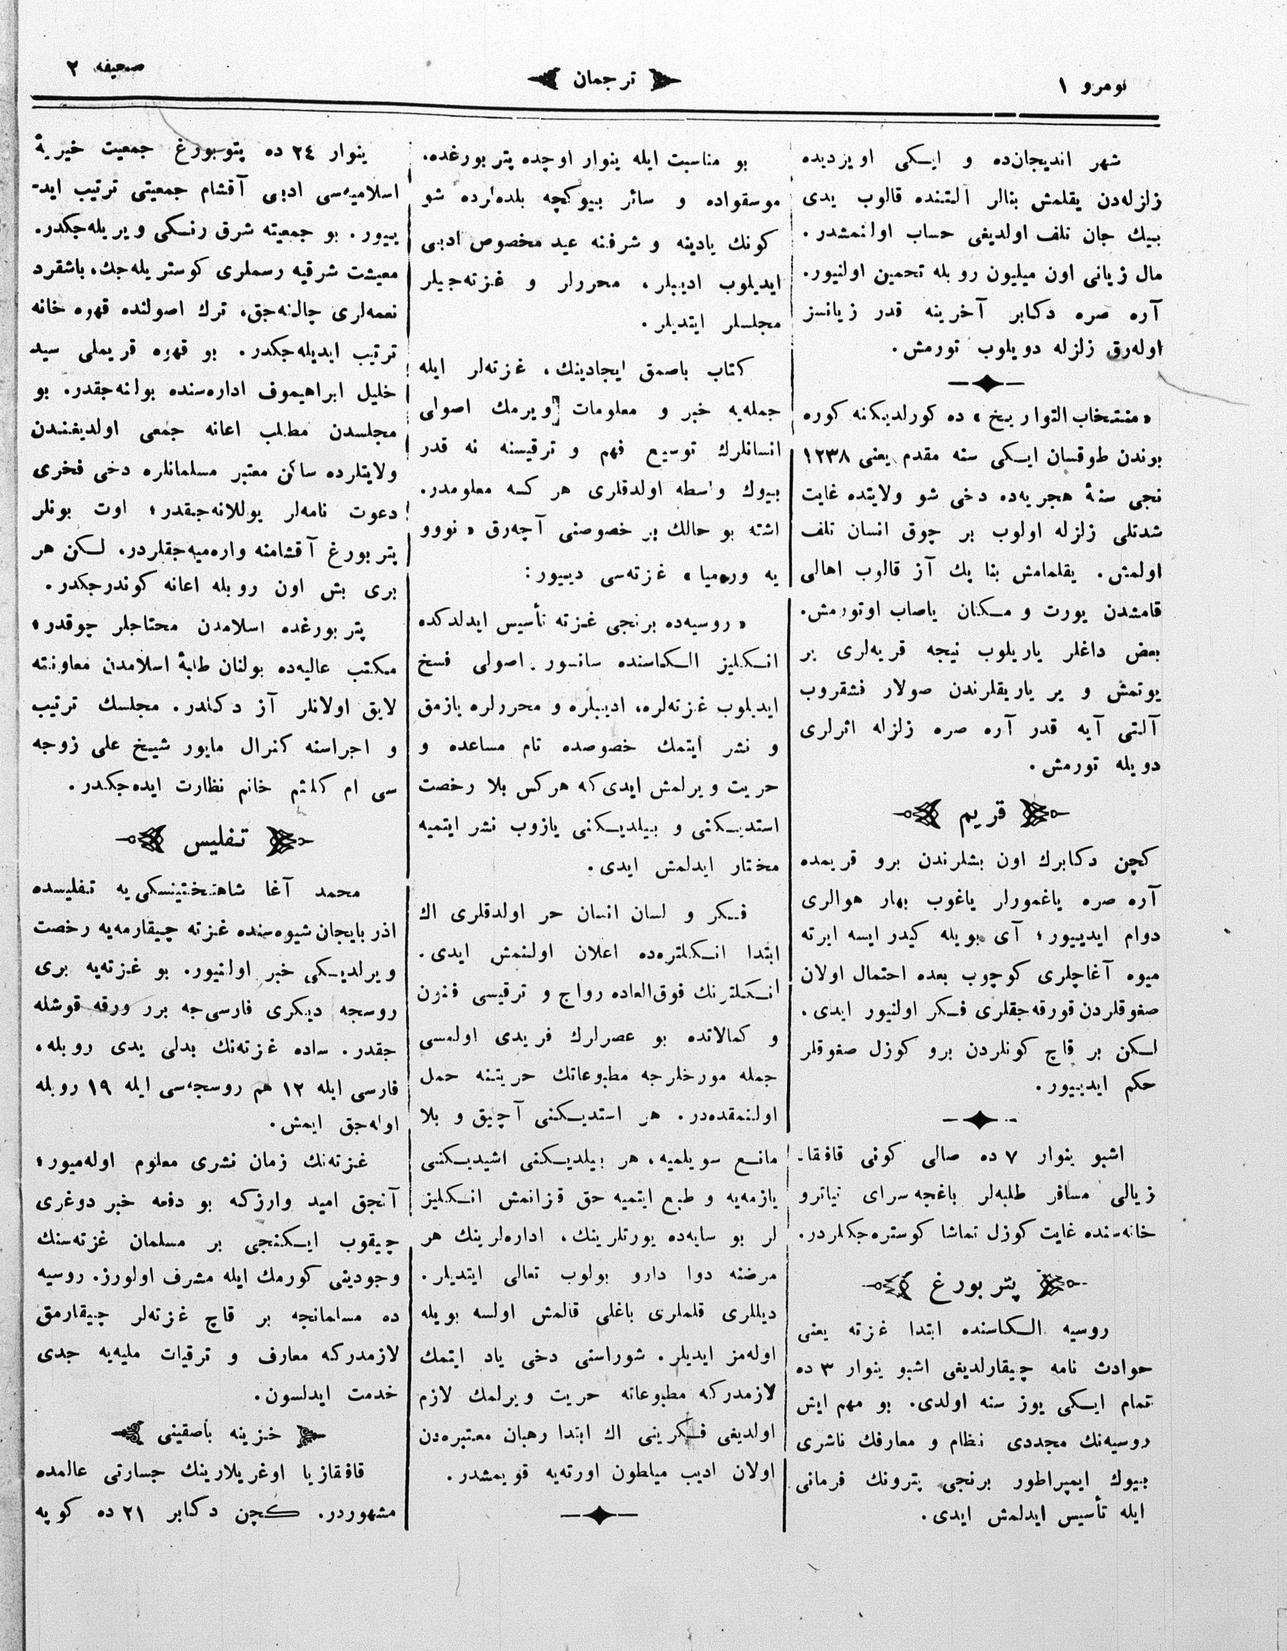 نومرو ١
ترجمان
صحیفه ٢
شهر اندیجان‌ده و ایکی اویزدیده
زلزله‌دن یقلمش بنالر آلتنده قالوب یدی
بیك جان تلف اولدیغی حساب اولنمشدر.
مال زیانی اون میلیون روبله تحمین اولنیور.
آره صره دکابر آخرینه قدر زیانسز
اوله‌رق زلزله دویلوب تورمش.
«منتخاب التواریخ» ده کورلدیکنه کوره
بوندن طوقسان ایکی سنه مقدم یعنی ١٢٣٨
نجی سنهٔ هجریه‌ده دخی شو ولایتده غایت
شدتلی زلزله اولوب بر چوق انسان تلف
اولمش. یقلمامش بنا پك آز قالوب اهالی
قامشدن یورت و مکان یاصاب اوتورمش.
بعض داغلر یاریلوب نیجه قریه‌لری بر
یوتمش و یر یاریقلرندن صولار فشقروب
آلتی آیه قدر آره صره زلزله اثرلری
دویله تورمش.
قریم
کچن دکابرك اون بشلرندن برو قریمده
آره صره یاغمورلر یاغوب بهار هوالری
دوام ایدییور؛ آی بویله کیدر ایسه ایرته
میوه آغاچلری کوچوب بعده احتمال اولان
صغوقلردن قورقه‌جقلری فکر اولنیور ایدی.
لکن بر قاچ کونلردن برو کوزل صغوقلر
حکم ایدییور.
اشبو ینوار ٧ ده صالی کونی قافقا-
زیالی مسافر طلبه‌لر باغچه‌سرای تیاترو
خانه‌سنده غایت کوزل تماشا کوستره‌جکلردر.
پتربورغ
روسیه الکاسنده ابتدا غزته یعنی
حوادث نامه چیقارلدیغی اشبو ینوار ٣ ده
تمام ایکی یوز سنه اولدی. بو مهم ایش
روسیه‌نك مجددی نظام و معارفك ناشری
بیوك ایمپراطور برنجی پترونك فرمانی
ایله تأسیس ایدلمش ایدی.
بو مناسبت ایله ینوار اوچده پتربورغده،
موسقواده و سائر بیوکچه بلده‌لرده شو
کونك یادینه و شرفنه عید مخصوص ادبی
ایدیلوب ادیبلر، محررلر و غزته‌جیلر
مجلسلر ایتدیلر.
کتاب باصمق ایجادینك، غزته‌لر ایله
جمله‌یه خبر و معلومات ویرمك اصولی
انسانلرك توسیع فهم و ترقیسنه نه قدر
بیوك واسطه اولدقلری هر کسه معلومدر.
اشته بو حالك بر خصوصنی آچه‌رق «نووو
یه وره‌میا» غزته‌سی دییور:
«روسیه‌ده برنجی غزته تأسیس ایدلدکده
انکلیز الکاسنده سانسور اصولی فسخ
ایدیلوب غزته‌لره، ادیبلره و محررلره یازمق
و نشر ایتمك خصوصده تام مساعده و
حریت ویرلمش ایدی‌که هرکس بلا رخصت
استدیکنی و بیلدیکنی یازوب نشر ایتمیه
مختار ایدلمش ایدی.
فکر و لسان انسان حر اولدقلری اك
ابتدا انکلتره‌ده اعلان اولنمش ایدی.
انکلترنك فوق‌العاده رواج و ترقیسی فنون
و کمالاتده بو عصرلرك فریدی اولمسی
جمله مورخلرجه مطبوعاتك حریتنه حمل
اولنمقده‌در. هر استدیکنی آچیق و بلا
مانع سویلمیه، هر بیلدیکنی اشیدیکنی
یازمه‌یه و طبع ایتمیه حق قزانمش انکلیز
لر بو سایه‌ده یورتلرینك، اداره‌لرینك هر
مرضنه دوا دارو بولوب تعالی ایتدیلر.
دیللری قلملری باغلی قالمش اولسه بویله
اوله‌مز ایدیلر. شوراسنی دخی یاد ایتمك
لازمدرکه مطبوعاته حریت ویرلمك لازم
اولدیغی فکرینی اك ابتدا رهبان معتبره‌دن
اولان ادیب میلطون اورته‌یه قویمشدر.
ینوار ٢٤ ده پتربورغ جمعیت خیریهٔ
اسلامیه‌سی ادبی آقشام جمعیتی ترتیب اید-
ییور. بو جمعیته شرق رنکی ویریله‌جکدر.
معیشت شرقیه رسملری کوستریله‌جك، باشقرد
نغمه‌لری چالنه‌جق، ترك اصولنده قهوه خانه
ترتیب ایدیله‌جکدر. بو قهوه قریملی سید
خلیل ابراهیموف اداره‌سنده بولنه‌جقدر. بو
مجلسدن مطلب اعانه جمعی اولدیغندن
ولایتلرده ساکن معتبر مسلمانلره دخی فخری
دعوت نامه‌لر یوللانه‌جقدر؛ اوت بونلر
پتربورغ آقشامنه واره‌میه‌جقلردر، لکن هر
بری بش اون روبله اعانه کوندرجکدر.
پتربورغده اسلامدن محتاجلر چوقدر؛
مکتب عالیه‌ده بولنان طلبهٔ اسلامدن معاونته
لایق اولانلر آز دکلدر. مجلسك ترتیب
و اجراسنه کنرال مایور شیخ علی زوجه
سی ام کلثم خانم نظارت ایده‌جکدر.
تفلیس
محمد آغا شاهتختینسکی‌یه تفلیسده
اذربایجان شیوه‌سنده غزته چیقارمه‌یه رخصت
ویرلدیکی خبر اولنیور. بو غزته‌یه بری
روسجه دیکری فارسی‌جه برر ورقه قوشله
جقدر. ساده غزته‌نك بدلی یدی روبله،
فارسی ایله ١٢ هم روسجه‌سی ایله ١٩ روبله
اوله‌جق ایمش.
غزته‌نك زمان نشری معلوم اوله‌میور؛
آنجق امید وارزکه بو دفعه خبر دوغری
چیقوب ایکنجی بر مسلمان غزته‌سنك
وجودینی کورمك ایله مشرف اولورز. روسیه
ده مسلمانجه بر قاچ غزته‌لر چیقارمق
لازمدرکه معارف و ترقیات ملیه‌یه جدی
خدمت ایدلسون.
خزینه باصقینی
قافقازیا اوغریلارینك جسارتی عالمده
مشهوردر. کچن دکابر ٢١ ده کوپه